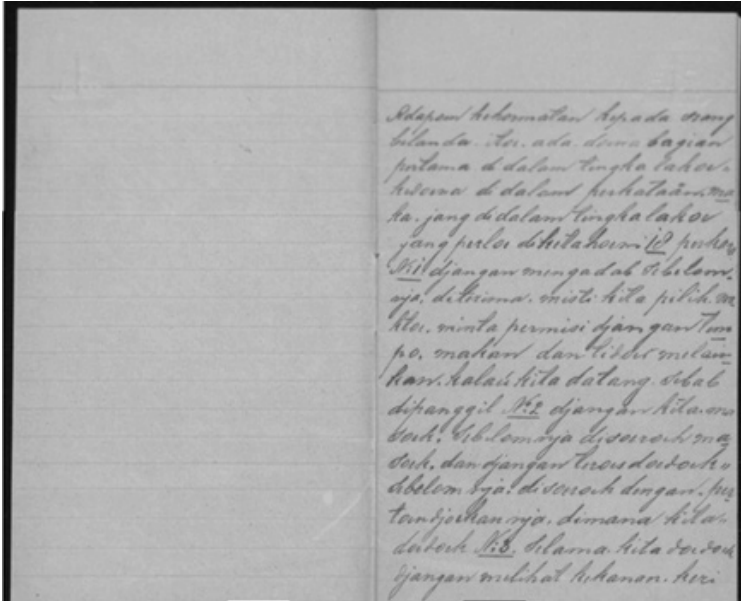 Adapon kehormatan kepada orang
belanda itoe ada doewa bagian
pertama di dalam tingka lakoe.
kedoewa di dalam perkataän, ma
ka, jang di dalam tingka lakoe
jang perloe diketahoewi 18 perkara
No 1 djangan mengadab sebelom-
nja, diterima. misti kita pilih wa
ktoe, minta permisi djangan tem
po, makan dan tidoer melain
kan, kalau kita datang sebab
dipanggil No 2 djangan kita ma
soek, sebelomnja disoeroeh ma
soek, dan djangan teroes doedoek
sebelom nja, disoeroeh dengan, per
toendjoekan nja, dimana kita
doedoek No 3. selama kita doedoek
djangan melihat kekanan, keri